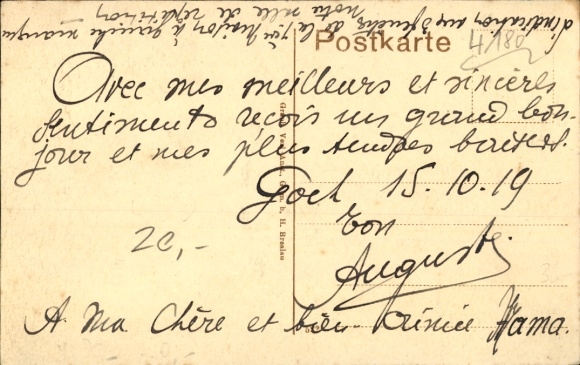 l'indication aux 3 fenêtres de la 1ère maison à gauche marque
notre salle de répétition
Postkarte
4/180
Avec mes meilleurs et sincères
sentiments reçois un grand bon-
jour et mes plus tendres baisers.
Goch 15.10.19
ton
Auguste.
20,-
A Ma Chère et bien Aimée Mama.
b. H. Breslau